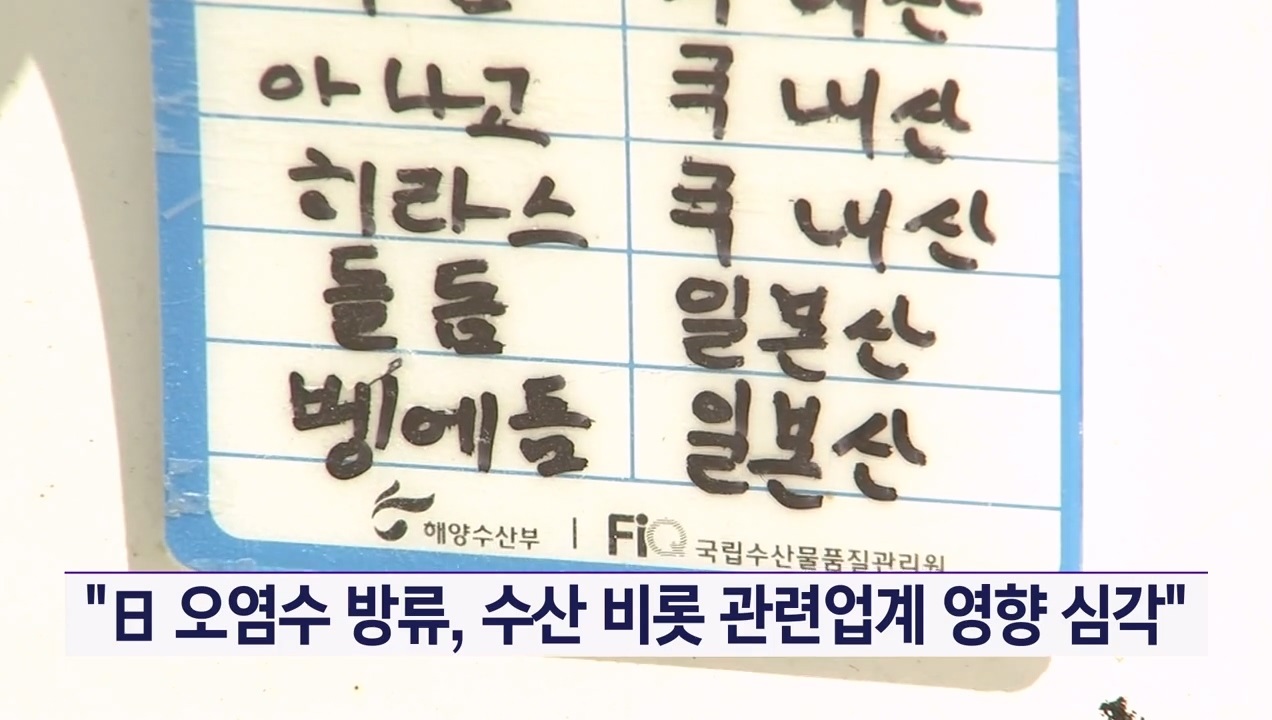 아나고 국내산
히라스 국내산
돌돔 일본산
벵에돔 일본산
해양수산부 | FiQ 국립수산물품질관리원
"日 오염수 방류, 수산 비롯 관련업계 영향 심각"